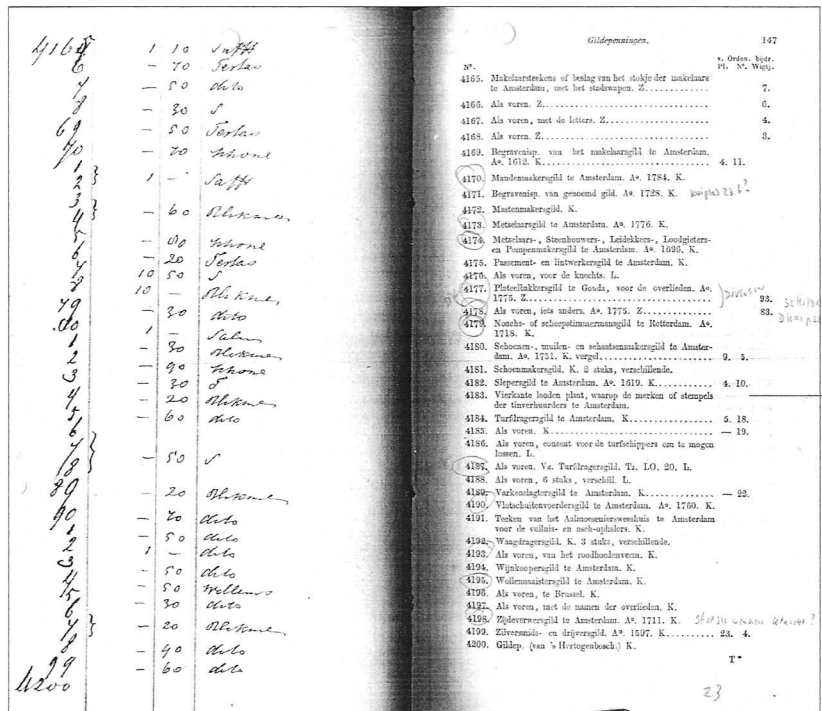 4165 1 10 Safft
6 – 70 Fertas
7 – 50 dito
8 – 30 S
69 – 50 Fertas
70 – 70 Schone
1 – Safft
– 60 Blikman
– 80 Schone
– 20 Fertas
10 50 S
10 – Blikman
– 30 dito
1 –
– 30 Blikman
– 90 Schone
– 30
– 20 Blikman
– 60 dito
– 50 S
– 20 Blikman
– 70 dito
– 50 dito
1 – dito
– 50 dito
– 50 Willems
– 30 dito
– 20 Blikman
– 90 dito
– 60 dito
99
4200
Gildepenningen. 147
v. Orden. bijdr.
N°. Pl. N°. Wigtj.
4165. Makelaarsteekens of beslag van het stokje der makelaars
te Amsterdam, met het stadswapen. Z............. 7.
4166. Als voren. Z................................... 6.
4167. Als voren, met de letters. Z.................... 4.
4168. Als voren. Z................................... 3.
4169. Begravenisp. van het makelaarsgild te Amsterdam.
A°. 1612. K.................................. 4. 11.
4170. Mandenmakersgild te Amsterdam. A°. 1784. K.
4171. Begravenisp. van genoemd gild. A°. 1728. K. 23 6?
4172. Mastenmakersgild. K.
4173. Metselaarsgild te Amsterdam. A°. 1776. K.
4174. Metselaars-, Steenhouwers-, Leidekkers-, Loodgieters-
en Pompenmakersgild te Amsterdam. A°. 1626. K.
4175. Passement- en lintwerkersgild te Amsterdam. K.
4176. Als voren, voor de knechts. L.
4177. Plateelbakkersgild te Gouda, voor de overlieden. A°.
1775. Z..................................... 93.
4178. Als voren, iets anders. A°. 1775. Z............. 83.
4179. Noschs- of scheepstimmermansgild te Rotterdam. A°.
1718. K.
4180. Schoenen-, muilen- en schaatsenmakersgild te Amster-
dam. A°. 1751. K. vergel....................... 9. 5.
4181. Schoenmakersgild. K. 2 stuks, verschillende.
4182. Slepersgild te Amsterdam. A°. 1619. K.......... 4. 10.
4183. Vierkante looden plaat, waarop de merken of stempels
der tinverhuurders te Amsterdam.
4184. Turfdragersgild te Amsterdam. K................ 5. 18.
4185. Als voren. K................................... — 19.
4186. Als voren, consent voor de turfschippers om te mogen
lossen. L.
4187. Als voren. Vz. Turfdragersgild. Tz. LO. 20. L.
4188. Als voren, 6 stuks, verschill. L.
4189. Varkenslagtersgild te Amsterdam. K............. — 22.
4190. Vlotschuitenvoerdersgild te Amsterdam. A°. 1760. K.
4191. Teeken van het Aalmoesenierseweeshuis te Amsterdam
voor de vuilnis- en asch-ophalers. K.
4192. Waagdragersgild. K. 3 stuks, verschillende.
4193. Als voren, van het roodhoedenveem. K.
4194. Wijnkoopersgild te Amsterdam. K.
4195. Wollennaaistersgild te Amsterdam. K.
4196. Als voren, te Brussel. K.
4197. Als voren, met de namen der overlieden. K.
4198. Zijdeverwersgild te Amsterdam. A°. 1711. K. Utrecht?
4199. Zilversmids- en drijversgild. A°. 1597. K.......... 23. 4.
4200. Gildep. (van 's Hertogenbosch.) K.
T*
23